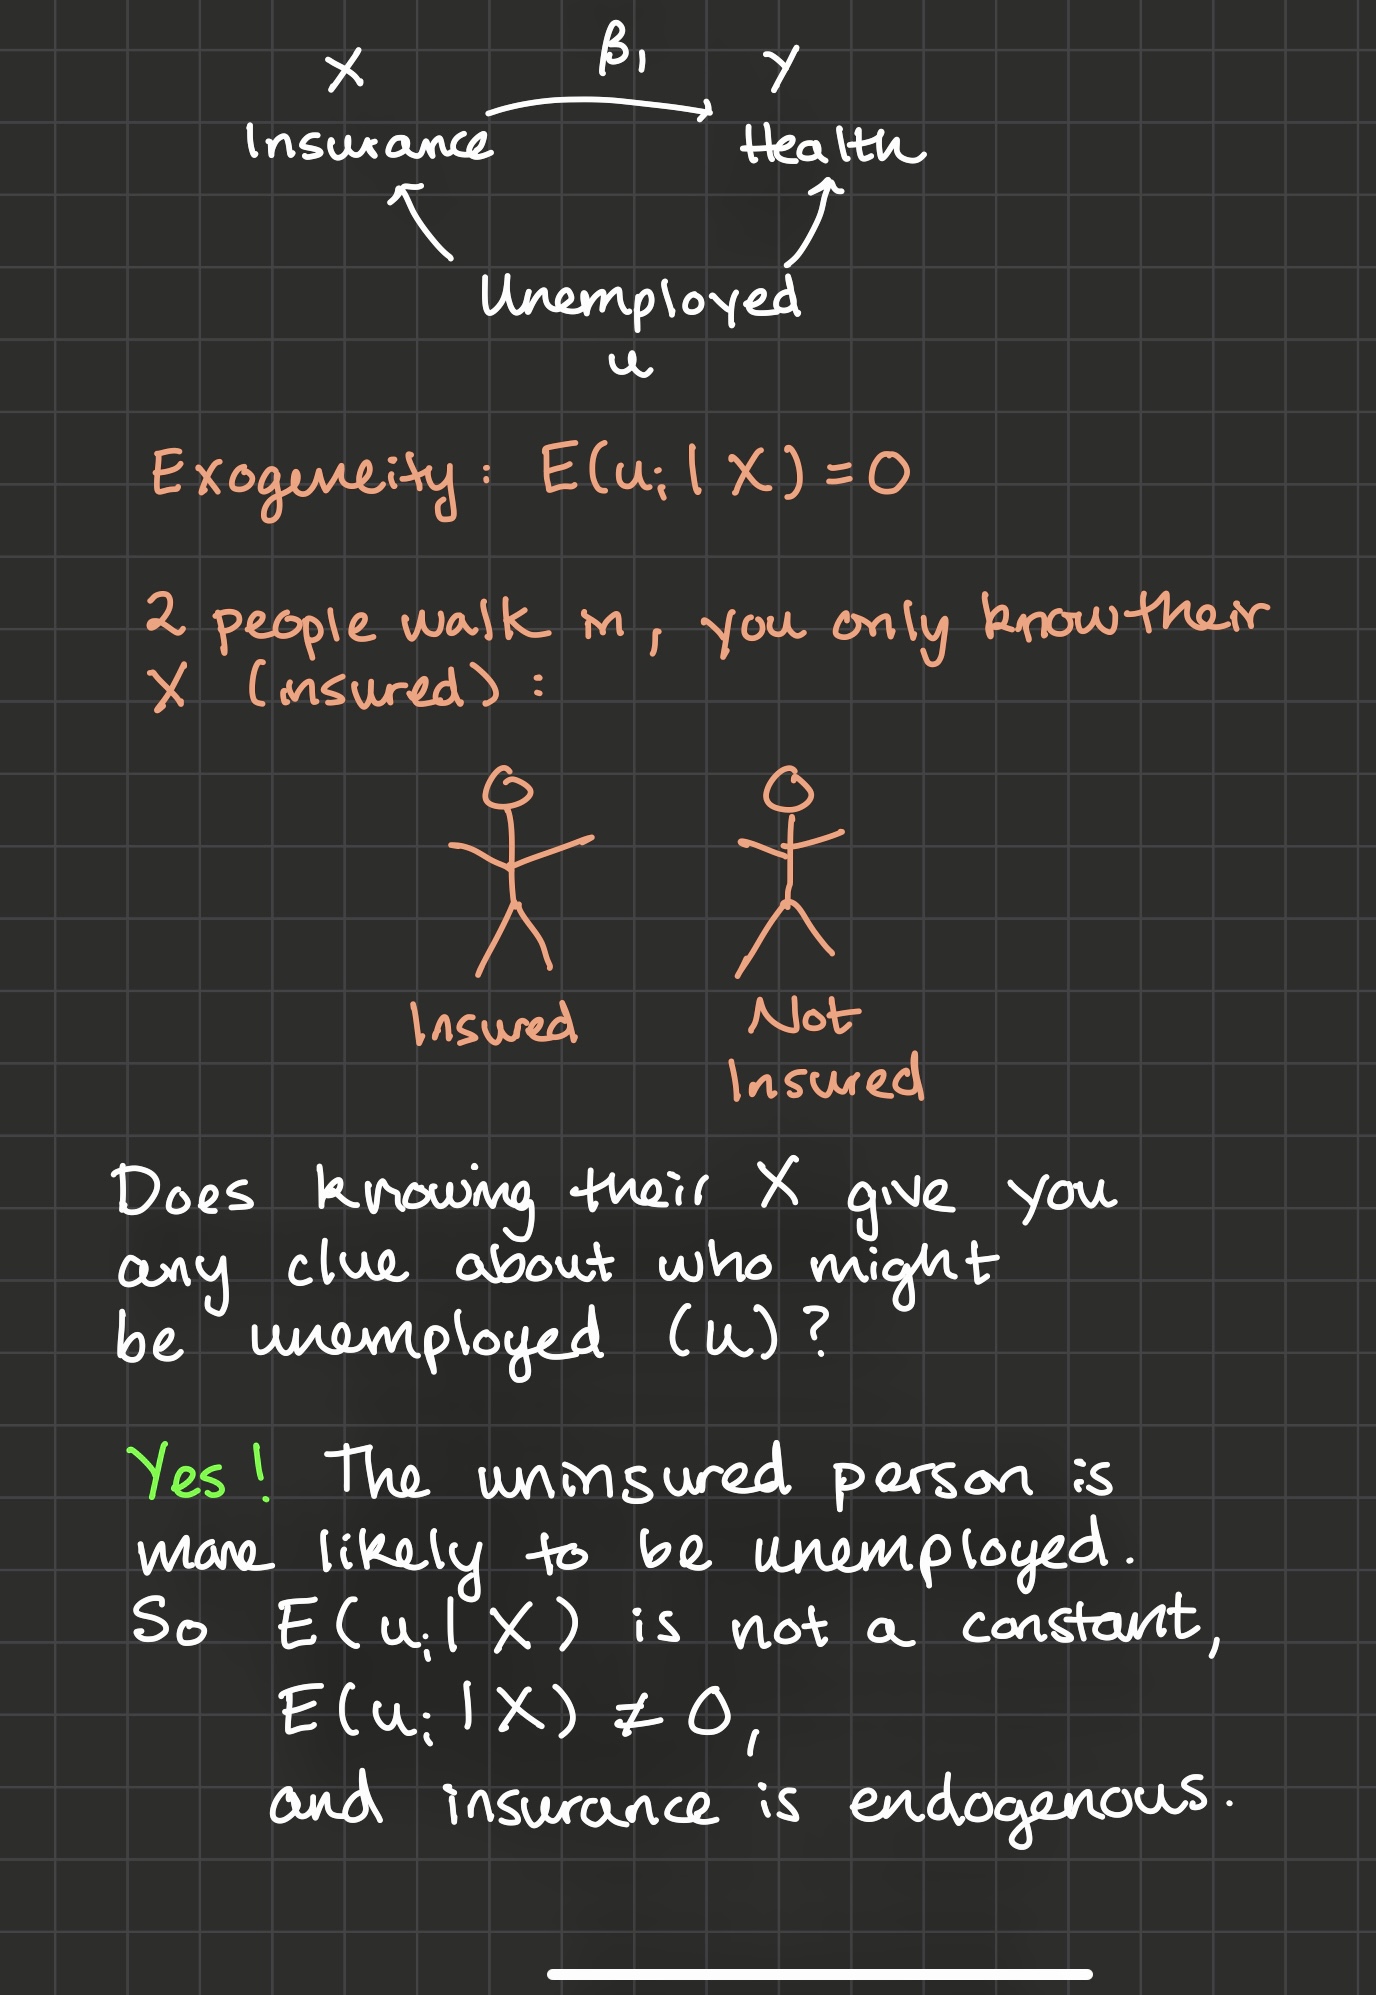 X β₁ Y
Insurance Health
Unemployed
u
Exogeneity: E(uᵢ | X) = 0
2 people walk in, you only know their
X (insured):
Insured Not
Insured
Does knowing their X give you
any clue about who might
be unemployed (u)?
Yes! The uninsured person is
more likely to be unemployed.
So E(uᵢ | X) is not a constant,
E(uᵢ | X) ≠ 0,
and insurance is endogenous.